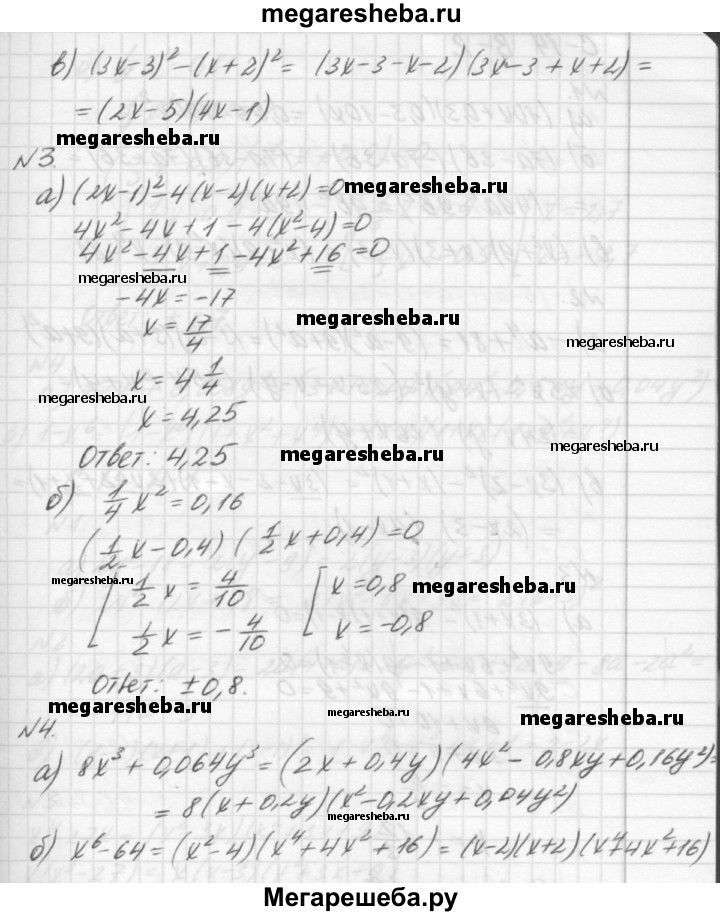 megaresheba.ru
в) (3x-3)² - (x+2)² = (3x-3-x-2)(3x-3+x+2) =
= (2x-5)(4x-1)
megaresheba.ru
megaresheba.ru
№3.
а) (2x-1)² - 4(x-2)(x+2) = 0
megaresheba.ru
4x² - 4x + 1 - 4(x²-4) = 0
4x² - 4x + 1 - 4x² + 16 = 0
megaresheba.ru
-4x = -17
x = 17/4
megaresheba.ru
megaresheba.ru
x = 4 1/4
megaresheba.ru
x = 4,25
Ответ: 4,25
megaresheba.ru
megaresheba.ru
б) 1/4 x² = 0,16
(1/2 x - 0,4)(1/2 x + 0,4) = 0
megaresheba.ru
[ 1/2 x = 4/10 [ x = 0,8
megaresheba.ru
1/2 x = - 4/10 x = -0,8
Ответ: ±0,8.
megaresheba.ru
megaresheba.ru
megaresheba.ru
№4.
а) 8x³ + 0,064y³ = (2x + 0,4y)(4x² - 0,8xy + 0,16y²) =
= 8(x + 0,2y)(x² - 0,2xy + 0,04y²)
megaresheba.ru
б) x⁶ - 64 = (x²-4)(x⁴ + 4x² + 16) = (x-2)(x+2)(x⁴+4x²+16)
Мегарешеба.ру